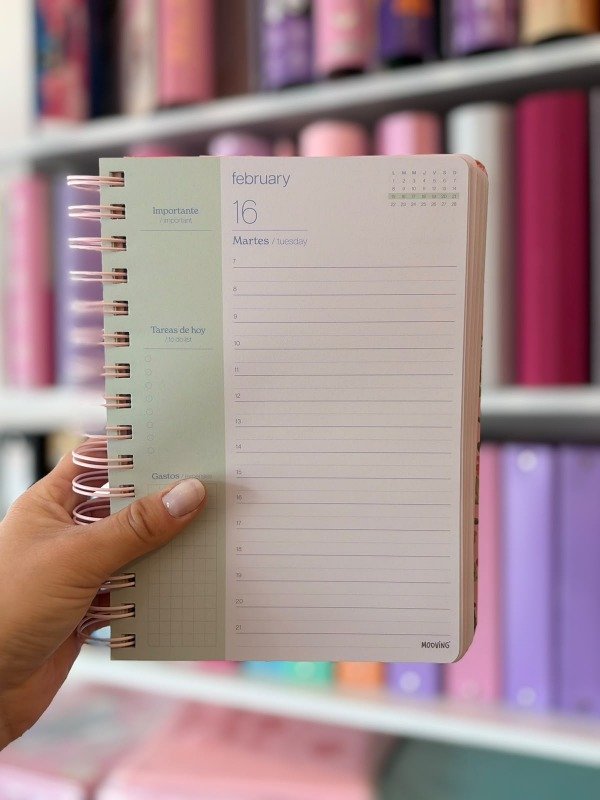 february
16
Martes / tuesday
L M M J V S D
1 2 3 4 5 6 7
8 9 10 11 12 13 14
15 16 17 18 19 20 21
22 23 24 25 26 27 28
Importante
/ important
Tareas de hoy
/ to do list
Gastos /
7
8
9
10
11
12
13
14
15
16
17
18
19
20
21
MOOVING